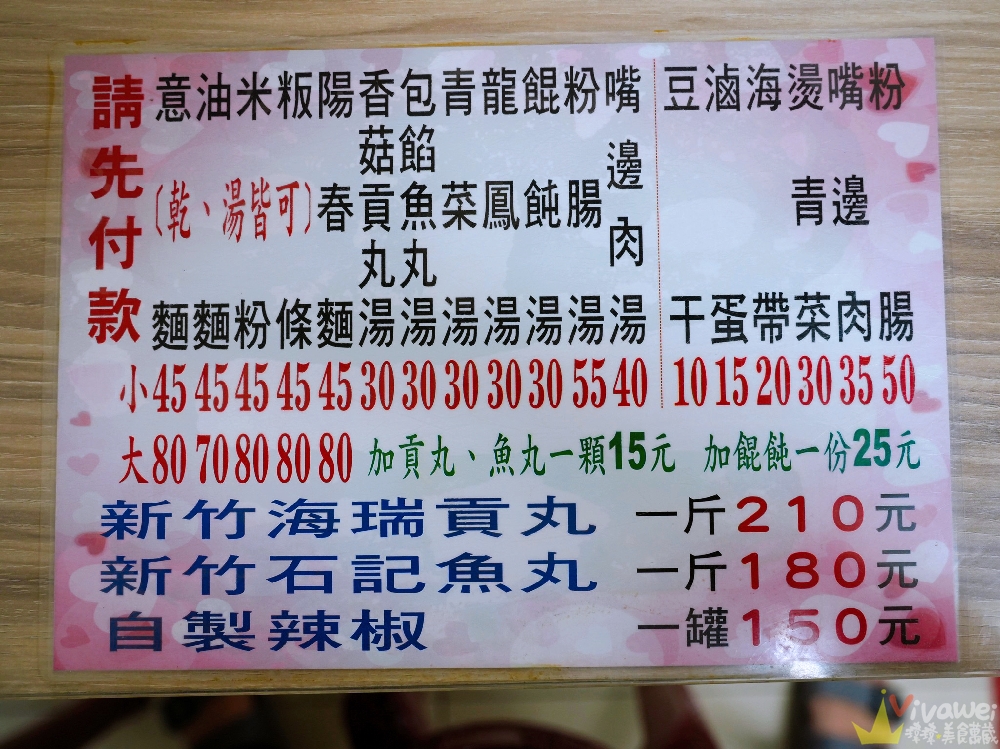 請先付款
意麵
油麵
米粉
粄條
(乾、湯皆可)
陽春麵
香菇貢丸湯
包餡魚丸湯
青菜湯
龍鳳湯
餛飩湯
粉腸湯
嘴邊肉湯
豆干
滷蛋
海帶
燙青菜
嘴邊肉
粉腸
小 45 45 45 45 45 30 30 30 30 30 55 40 10 15 20 30 35 50
大 80 70 80 80 80 加貢丸、魚丸一顆15元 加餛飩一份25元
新竹海瑞貢丸 一斤210元
新竹石記魚丸 一斤180元
自製辣椒 一罐150元
Vivawei